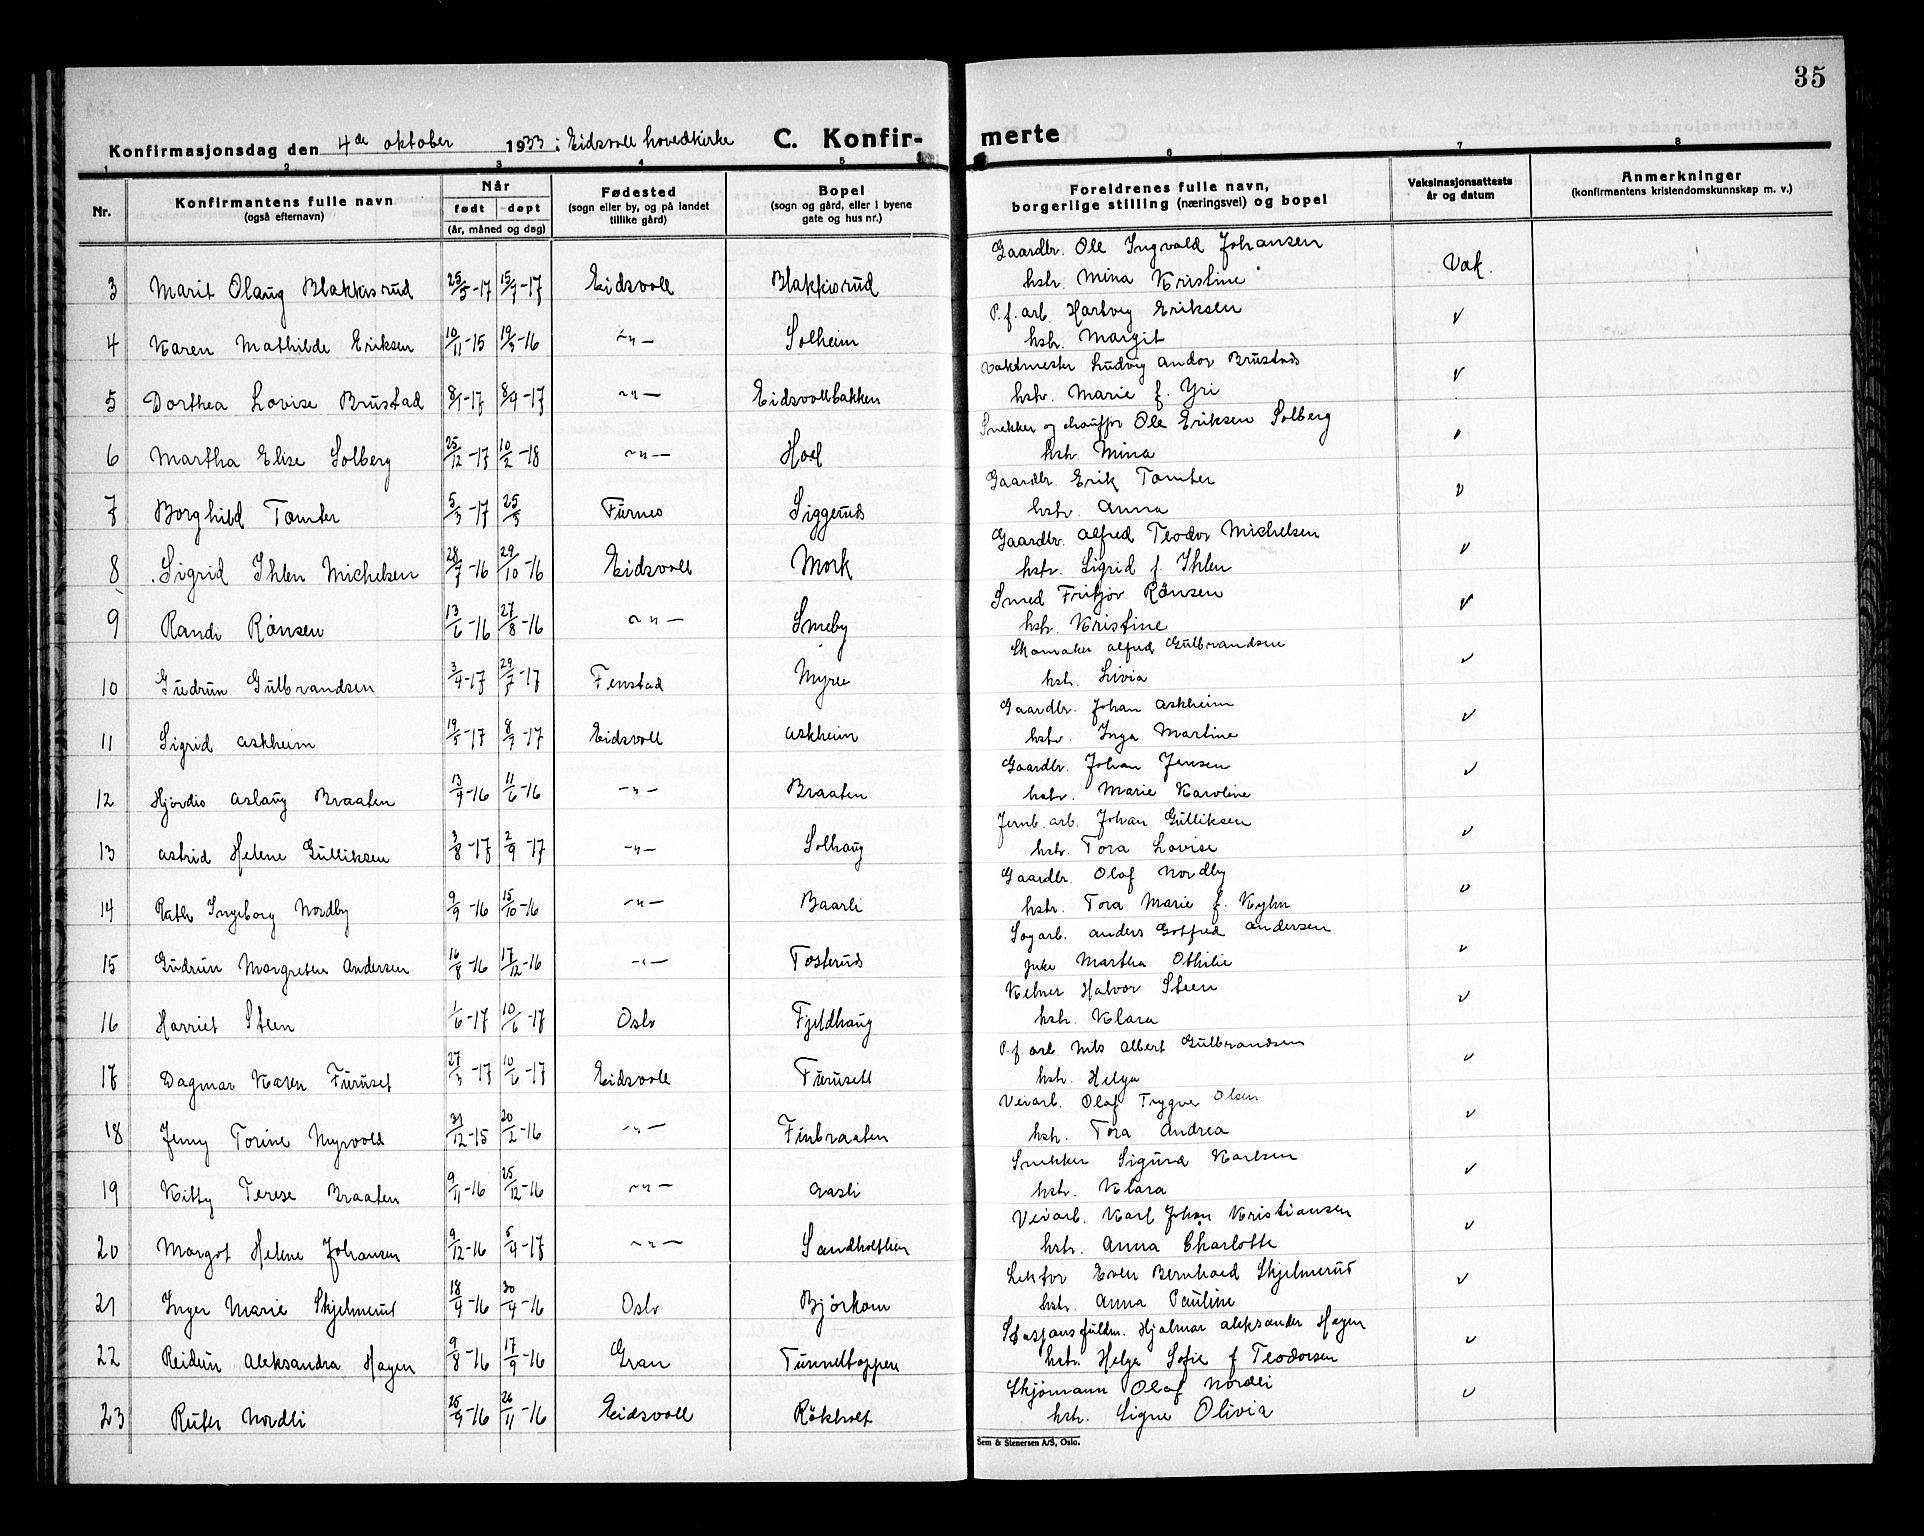 35
Konfirmasjonsdag den 4de oktober 1933 i Eidsvoll hovedkirke C. Konfir-merte
1 2 3 4 5 6 7 8
Nr. Konfirmantens fulle navn (også efternavn) Når født døpt (år, måned og dag) Fødested (sogn eller by, og på landet tillike gård) Bopel (sogn og gård, eller i byene gate og hus nr.) Foreldrenes fulle navn, borgerlige stilling (næringsvei) og bopel Vaksinasjonsattests år og datum Anmerkninger (konfirmantens kristendomskunnskap m. v.)
3 Marit Olaug Blakkisrud 25/5-17 15/7-17 Eidsvoll Blakkisrud Gaardbr. Ole Ingvald Johansen Vak.
hstr. Mina Kristine
4 Karen Mathilde Eriksen 10/11-15 19/3-16 -"- Solheim P.f. arb. Hartvig Eriksen v
hstr. Margit
5 Dorthea Lovise Brustad 8/7-17 8/9-17 -"- Eidsvollbakken Vaktmester Ludvig Andor Brustad v
hstr. Marie f. Yri
6 Martha Elise Solberg 25/12-17 10/2-18 -"- Hoel Snekker og chauffør Ole Eriksen Solberg v
hstr. Mina
7 Borghild Tomter 5/3-17 25/3 Furnes Siggerud Gaardbr. Erik Tomter v
hstr. Anna
8 Sigrid Ihlen Michelsen 28/7-16 29/10-16 Eidsvoll Mork Gaardbr. Alfred Teodor Michelsen v
hstr. Sigrid f. Ihlen
9 Randi Rønsen 13/6-16 27/8-16 -"- Smeby Smed Fritjov Rønsen v
hstr. Kristine
10 Gudrun Gulbrandsen 3/4-17 29/7-17 Fenstad Myre Skomaker Alfred Gulbrandsen v
hstr. Livia
11 Sigrid Askheim 19/5-17 8/7-17 Eidsvoll Askheim Gaardbr. Johan Askheim v
hstr. Inga Martine
12 Hjørdis Aslaug Braaten 13/4-16 11/6-16 -"- Braaten Gaardbr. Johan Jensen v
hstr. Marie Karoline
13 Astrid Helene Gulliksen 3/8-17 2/9-17 -"- Solhaug Jernb. arb. Johan Gulliksen v
hstr. Tora Lovise
14 Ingeborg Nordby 9/9-16 15/10-16 -"- Baarli Gaardbr. Olaf Nordby v
hstr. Tora Marie f.
15 Gudrun Margrethe Andersen 16/8-16 17/12-16 -"- Tosterud Sagarb. Anders Gotfred Andersen v
Martha Othilie
16 Harriet Steen 1/6-17 10/6-17 Oslo Fjeldhaug Kelner Halvor Steen v
hstr. Klara
17 Dagmar Karen Furuset 27/3-17 10/6-17 Eidsvoll Furusett P.f. arb. Nils Albert Gulbrandsen v
hstr. Helga
18 Jenny Torine Myrvold 31/12-15 20/2-16 -"- Finbraaten Veiarb. Olaf Trygve Olsen v
hstr. Tora Andrea
19 Kitty Terese Braaten 9/11-16 25/12-16 -"- Aasli Snekker Sigurd Karlsen v
hstr. Klara
20 Margot Helene Johansen 9/12-16 5/4-17 -"- Sandholtlien Veiarb. Karl Johan Kristiansen v
hstr. Anna Charlotte
21 Inger Marie Skjelmerud 18/4-16 30/4-16 Oslo Bjørkom Lektor Even Bernhard Skjelmerud v
hstr. Anna Pauline
22 Reidun Aleksandra Hagen 9/8-16 17/9-16 Gran Tunneltoppen Stasjonsfuldm. Hjalmar Aleksander Hagen v
hstr. Helga Sofie f Teodorsen
23 Ruth Nordli 25/9-16 26/11-16 Eidsvoll Råkholt Skjømann Olaf Nordli v
hstr. Signe Olivia
Sem & Stenersen A/S, Oslo.